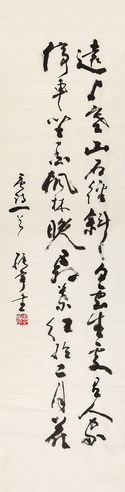 遠上寒山石徑斜白雲生處有人家
停車坐愛楓林晚霜葉紅於二月花